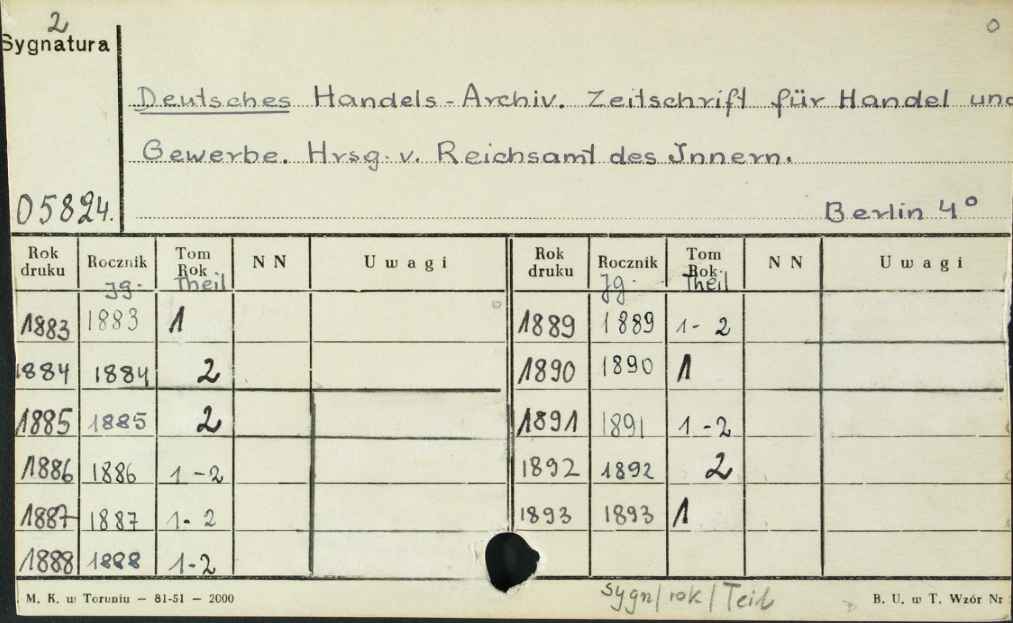 2
Sygnatura
0
Deutsches Handels-Archiv. Zeitschrift für Handel und
Gewerbe. Hrsg. v. Reichsamt des Innern.
05824.
Berlin 4°
Rok druku Rocznik Jg. Tom Rok Theil NN Uwagi Rok druku Rocznik Jg. Tom Rok Theil NN Uwagi
1883 1883 1 1889 1889 1-2
1884 1884 2 1890 1890 1
1885 1885 2 1891 1891 1-2
1886 1886 1-2 1892 1892 2
1887 1887 1-2 1893 1893 1
1888 1888 1-2
sygn/rok/Teil
M. K. w Toruniu — 81-51 — 2000 B. U. w T. Wzór Nr